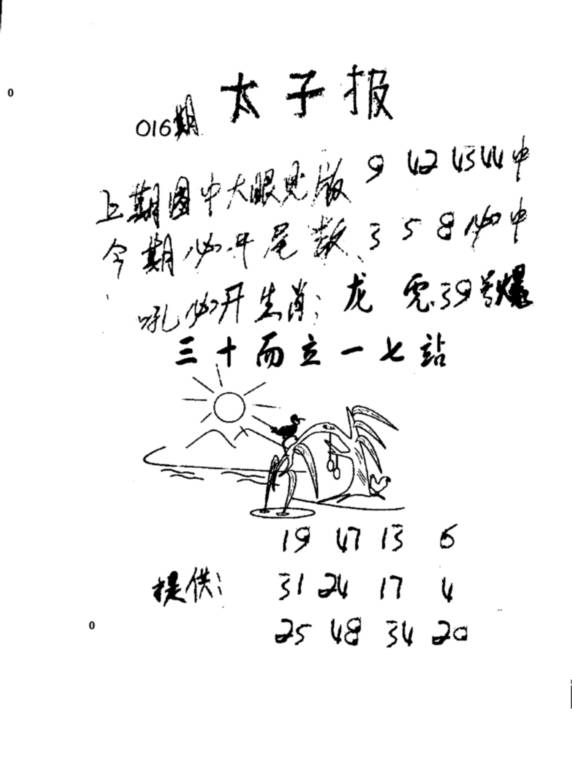 太子报
016期
上期图中大眼见版 9 42 43 44中
今期必开尾数、3 5 8必中
必开生肖：龙 虎39号爆
三十而立一七站
19 47 13 6
提供： 31 24 17 4
25 48 34 20